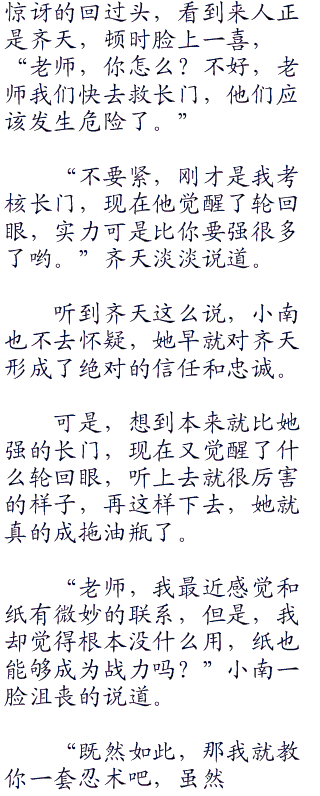 惊讶的回过头，看到来人正
是齐天，顿时脸上一喜，
“老师，你怎么？不好，老
师我们快去救长门，他们应
该发生危险了。”
“不要紧，刚才是我考
核长门，现在他觉醒了轮回
眼，实力可是比你要强很多
了哟。”齐天淡淡说道。
听到齐天这么说，小南
也不去怀疑，她早就对齐天
形成了绝对的信任和忠诚。
可是，想到本来就比她
强的长门，现在又觉醒了什
么轮回眼，听上去就很厉害
的样子，再这样下去，她就
真的成拖油瓶了。
“老师，我最近感觉和
纸有微妙的联系，但是，我
却觉得根本没什么用，纸也
能够成为战力吗？”小南一
脸沮丧的说道。
“既然如此，那我就教
你一套忍术吧，虽然